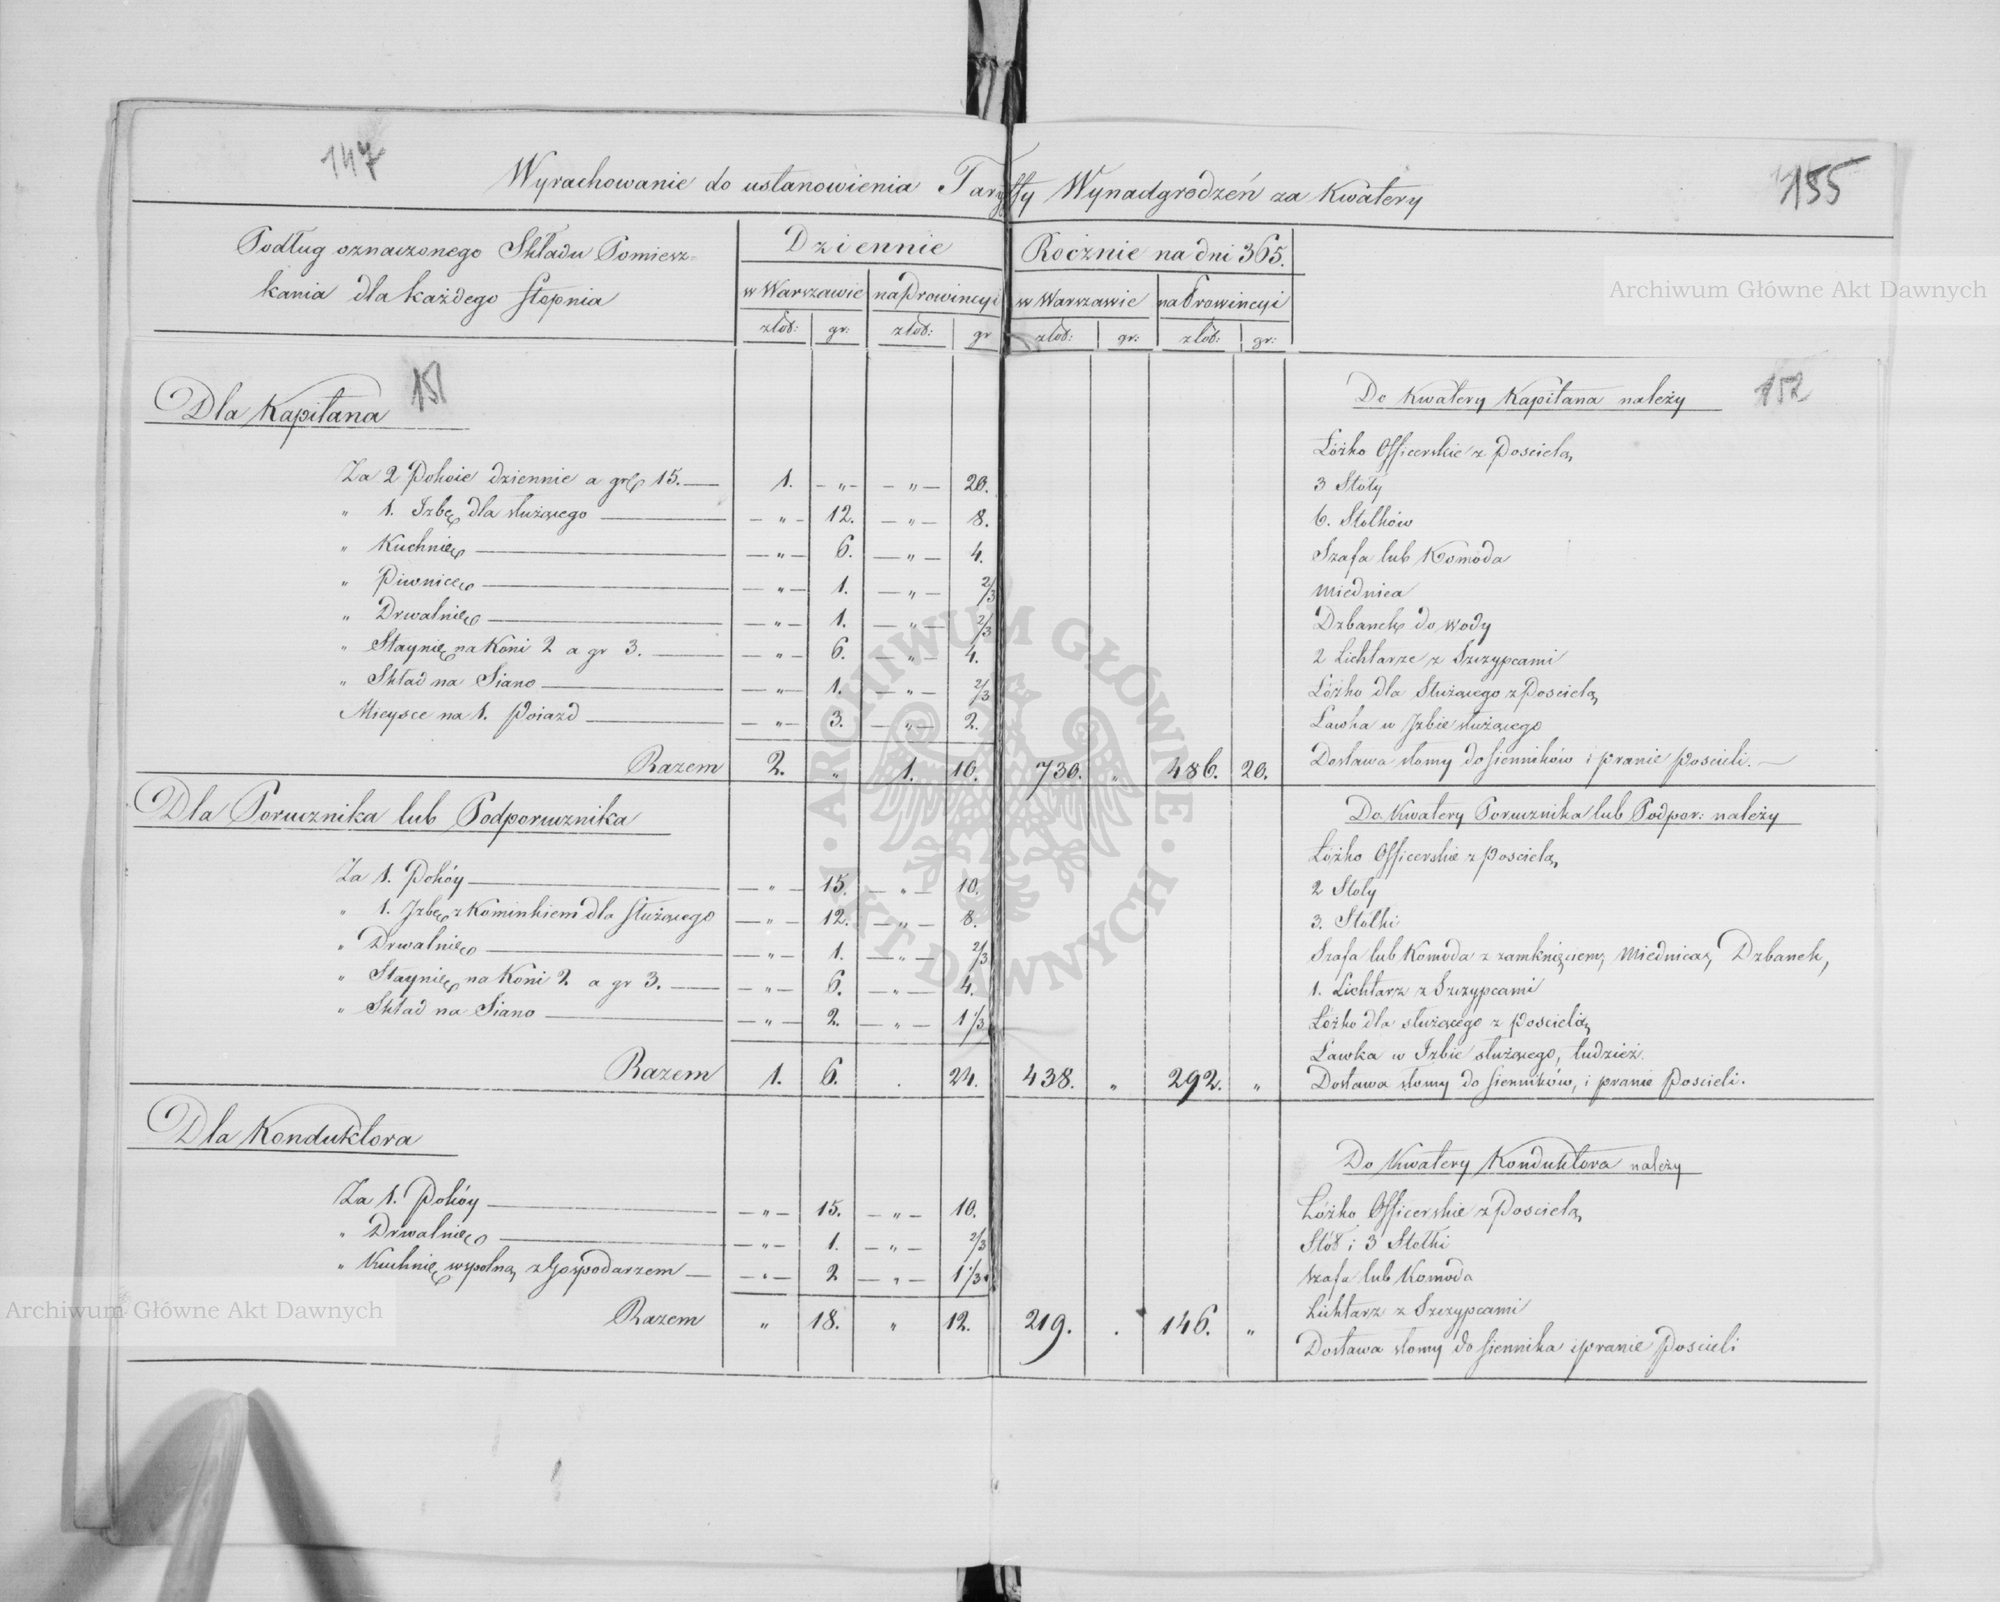 147
155
Wyrachowanie do ustanowienia Taryffy Wynadgrodzeń za Kwatery
Podług oznaczonego Składu Pomiesz=
kania dla każdego stopnia
Dziennie
Rocznie na dni 365.
w Warszawie na Prowincyi w Warszawie na Prowincyi
złod: gr: złod: gr złod: gr: złod: gr:
Dla Kapitana
151
Za 2 Pokoie dziennie a gr 15. 1. — „ — — „ — 20.
„ 1. Izbę dla służącego — „ — 12. — „ — 8.
„ Kuchnię — „ — 6. — „ — 4.
„ Piwnicę — „ — 1. — „ — 2/3
„ Drwalnię — „ — 1. — „ — 2/3
„ Staynię na Koni 2 a gr 3. — „ — 6. — „ — 4.
„ Skład na Siano — „ — 1. — „ — 2/3
Mieysce na 1. Poiazd — „ — 3. — „ — 2.
Razem 2. „ 1. 10. 730. „ 486. 20.
Do Kwatery Kapitana należy
152
Łóżko Officerskie z Pościelą
3 Stoły
6. Stołków
Szafa lub Komoda
Miednica
Dzbanek do wody
2 Lichtarze z Szczypcami
Łóżko dla Służącego z Pościelą
Ławka w Izbie służącego
Dostawa słomy do sienników i pranie pościeli. —
Dla Porucznika lub Podporucznika
Za 1. Pokóy — „ — 15. — „ — 10.
„ 1. Izbę z Kominkiem dla Służącego — „ — 12. — „ — 8.
„ Drwalnię — „ — 1. — „ — 2/3
„ Staynię na Koni 2 a gr 3. — „ — 6. — „ — 4.
„ Skład na Siano — „ — 2. — „ — 1 1/3
Razem 1. 6. . 24. 438. „ 292. „
Do Kwatery Porucznika lub Podpor: należy
Łóżko Officerskie z pościelą
2 Stoły
3. Stołki
Szafa lub Komoda z zamknięciem, Miednica, Dzbanek,
1. Lichtarz z Szczypcami
Łóżko dla służącego z pościelą
Ławka w Izbie służącego, tudzież
Dostawa słomy do sienników, i pranie Pościeli.
Dla Konduktora
Za 1. Pokóy — „ — 15. — „ — 10.
„ Drwalnię — „ — 1. — „ — 2/3
„ Kuchnię wspolną z Gospodarzem — „ — 2 — „ — 1 1/3
Razem „ 18. „ 12. 219. . 146. „
Do Kwatery Konduktora należy
Łóżko Officerskie z Pościelą
Stół i 3 Stołki
Szafa lub Komoda
Lichtarz z Szczypcami
Dostawa słomy do siennika i pranie Pościeli
Archiwum Główne Akt Dawnych
Archiwum Główne Akt Dawnych
ARCHIWUM GŁÓWNE AKT DAWNYCH